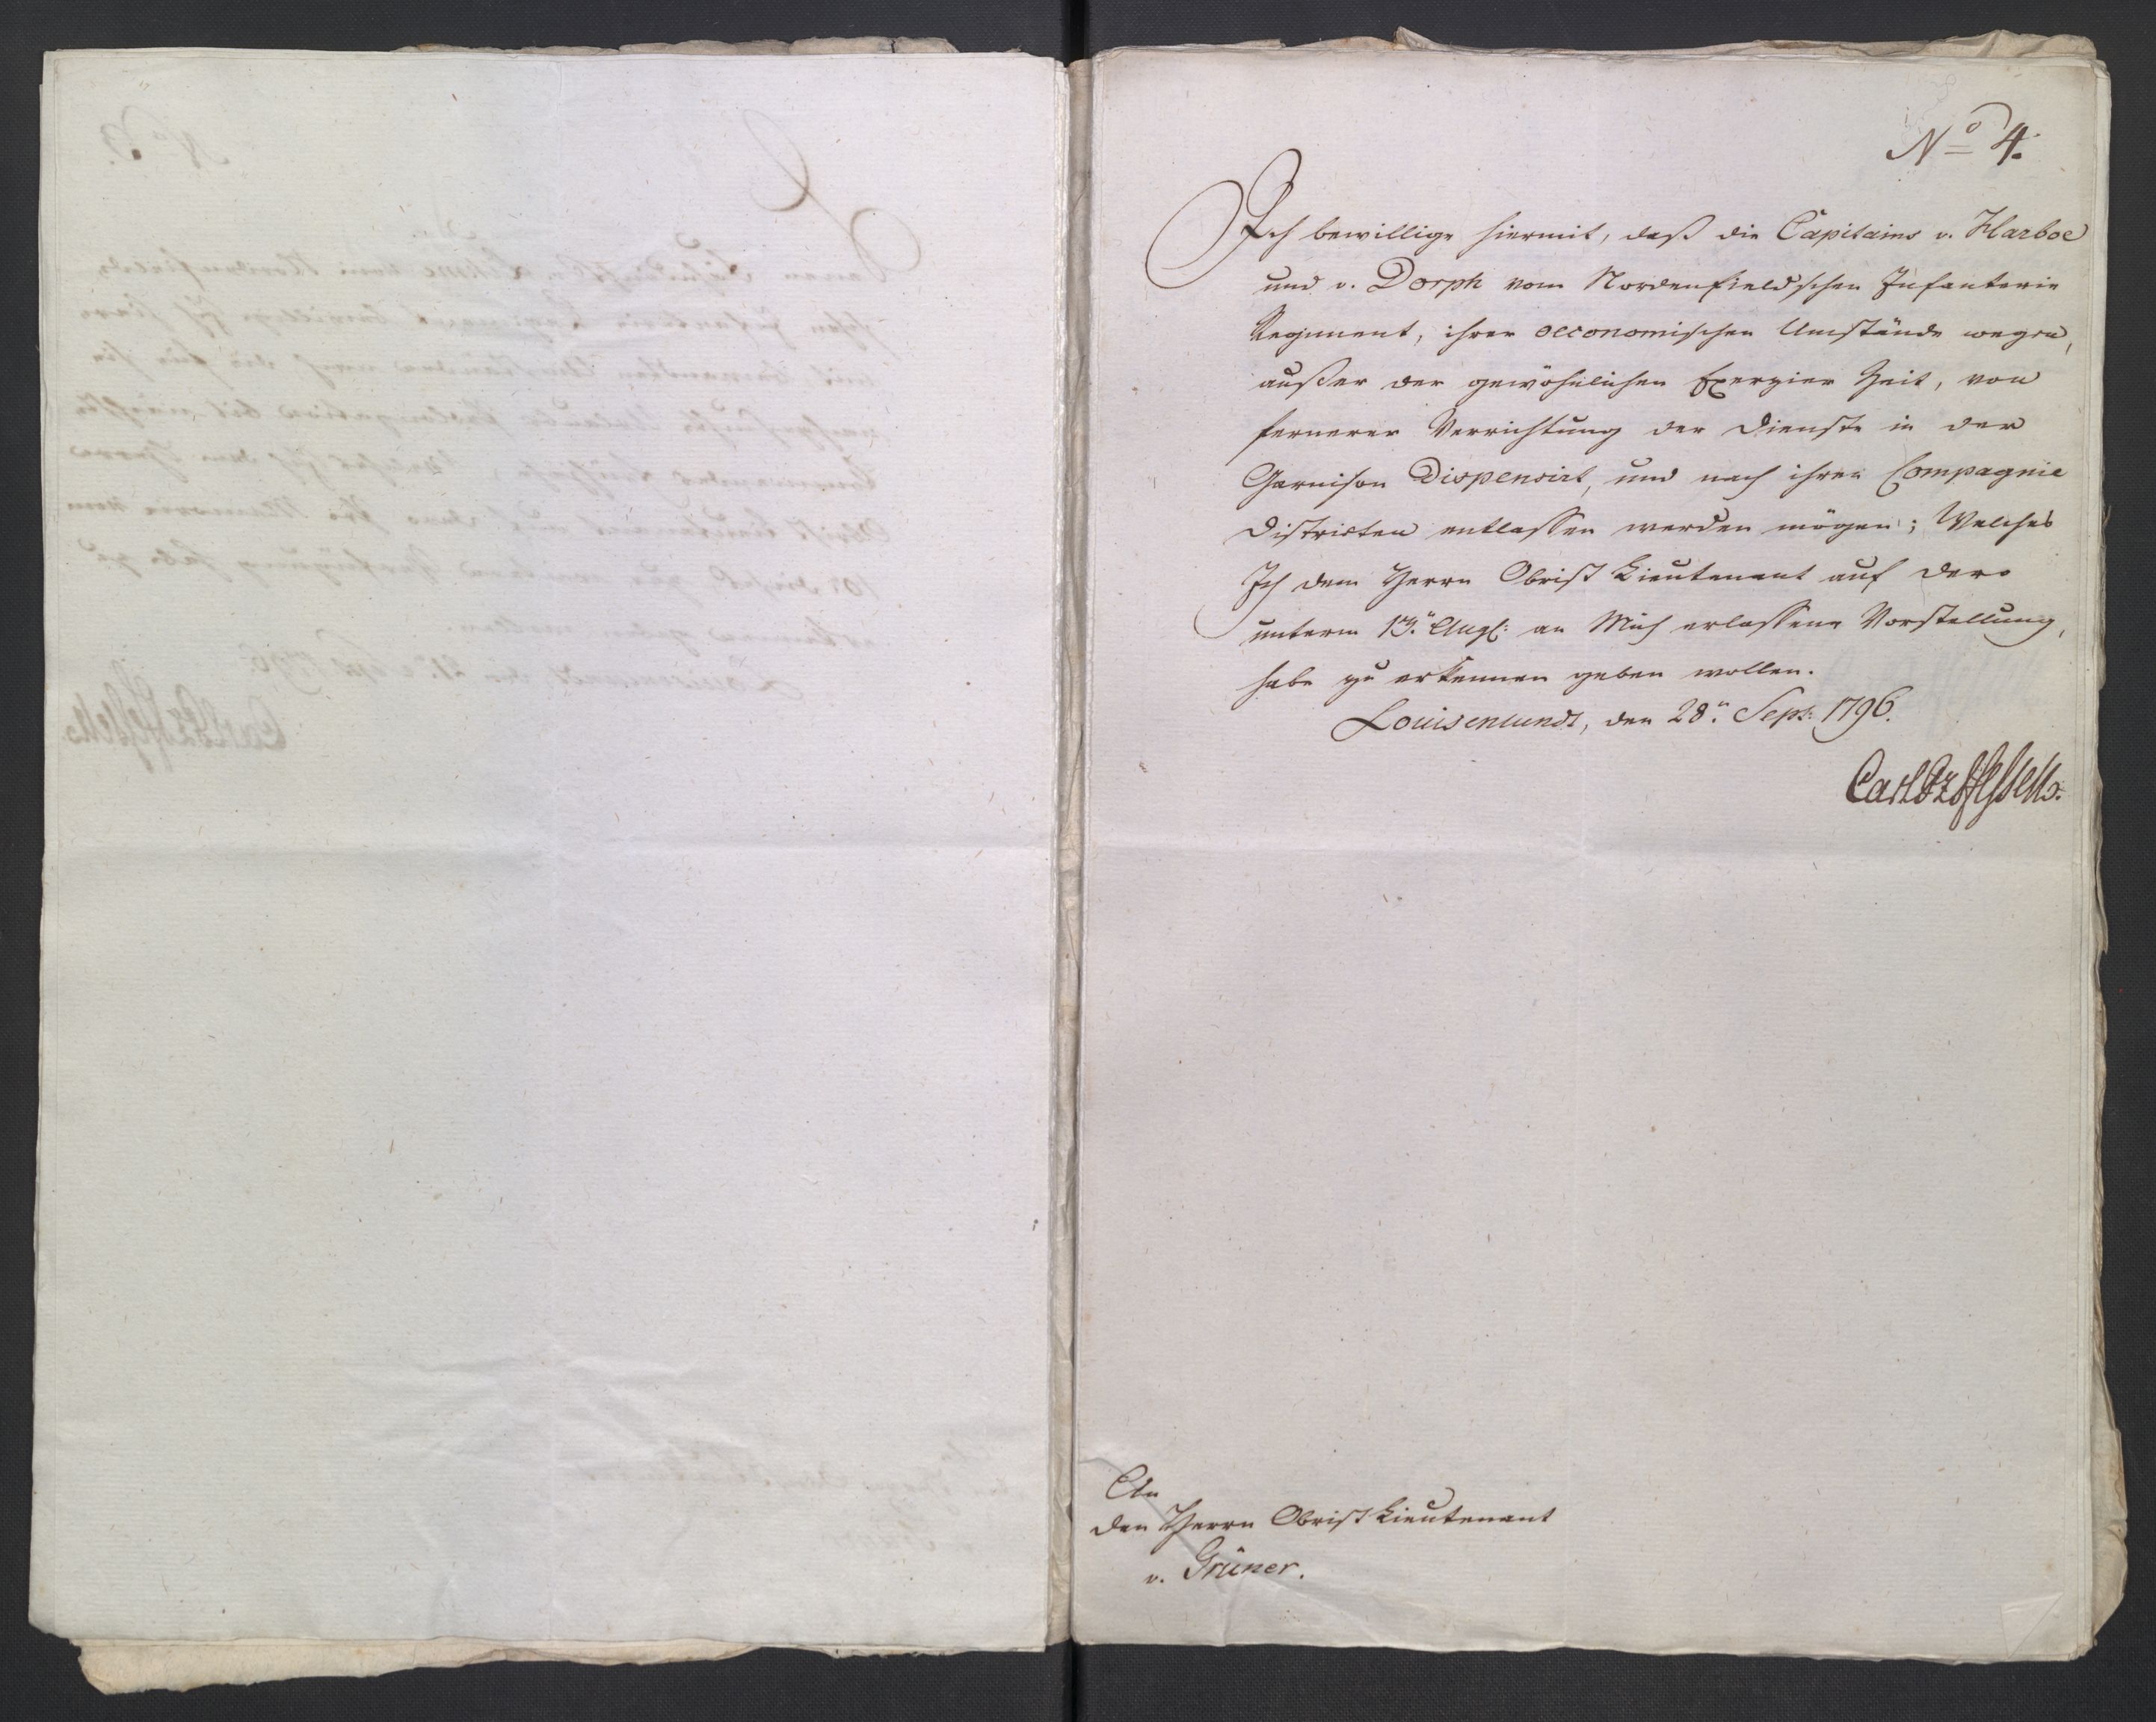 No 4.
Ich bewillige hiermit, daß die Capitains v. Harboe
und v. Dorph vom Nordenfield'schen Infanterie
Regiment, ihrer oeconomischen Umstände wegen,
außer der gewöhnlichen Exerzier Zeit, von
fernerer Verrichtung der Dienste in der
Garnison Dispensirt, und nach ihren Compagnie
Districten entlassen werden mögen; Welches
Ich dem Herrn Obrist Lieutenant auf dero
unterm 13.n Aug: an Mich erlassene Vorstellung,
habe zu erkennen geben wollen.
Louisenlundt, den 28.n Sept: 1796.
Carl Pz Hessen
An
den Herrn Obrist Lieutenant
v. Grüner.